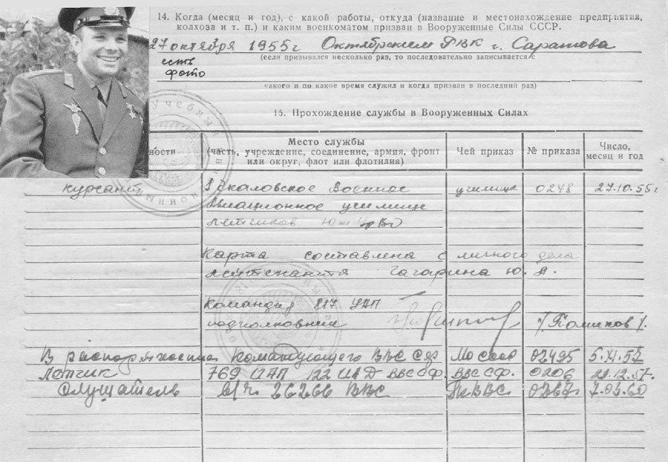 14. Когда (месяц и год), с какой работы, откуда (название и местонахождение предприятия,
колхоза и т. п.) и каким военкоматом призван в Вооруженные Силы СССР.
27 октября 1955г Октябрьским РВК г. Саратова
есть
фото
(если призывался несколько раз, то последовательно записывается с
какого и по какое время служил и когда призван в последний раз)
15. Прохождение службы в Вооруженных Силах
ности
Место службы
(часть, учреждение, соединение, армия, фронт
или округ, флот или флотилия)
Чей приказ
№ приказа
Число,
месяц и год
курсант 1 Чкаловское Военное училище 0248 27.10.55г
Авиационное училище
летчиков
Карта составлена с личного дела
лейтенанта Гагарина Ю. А.
Командир 817 УАП
подполковник
В распоряжении Командующего ВВС СФ МО СССР 02495 5.XI.57
Летчик 769 ИАП 122 ИАД ВВС СФ. ВВС СФ. 0206 .12.57.
Слушатель в/ч 26266 ВВС ВВС 7.03.60